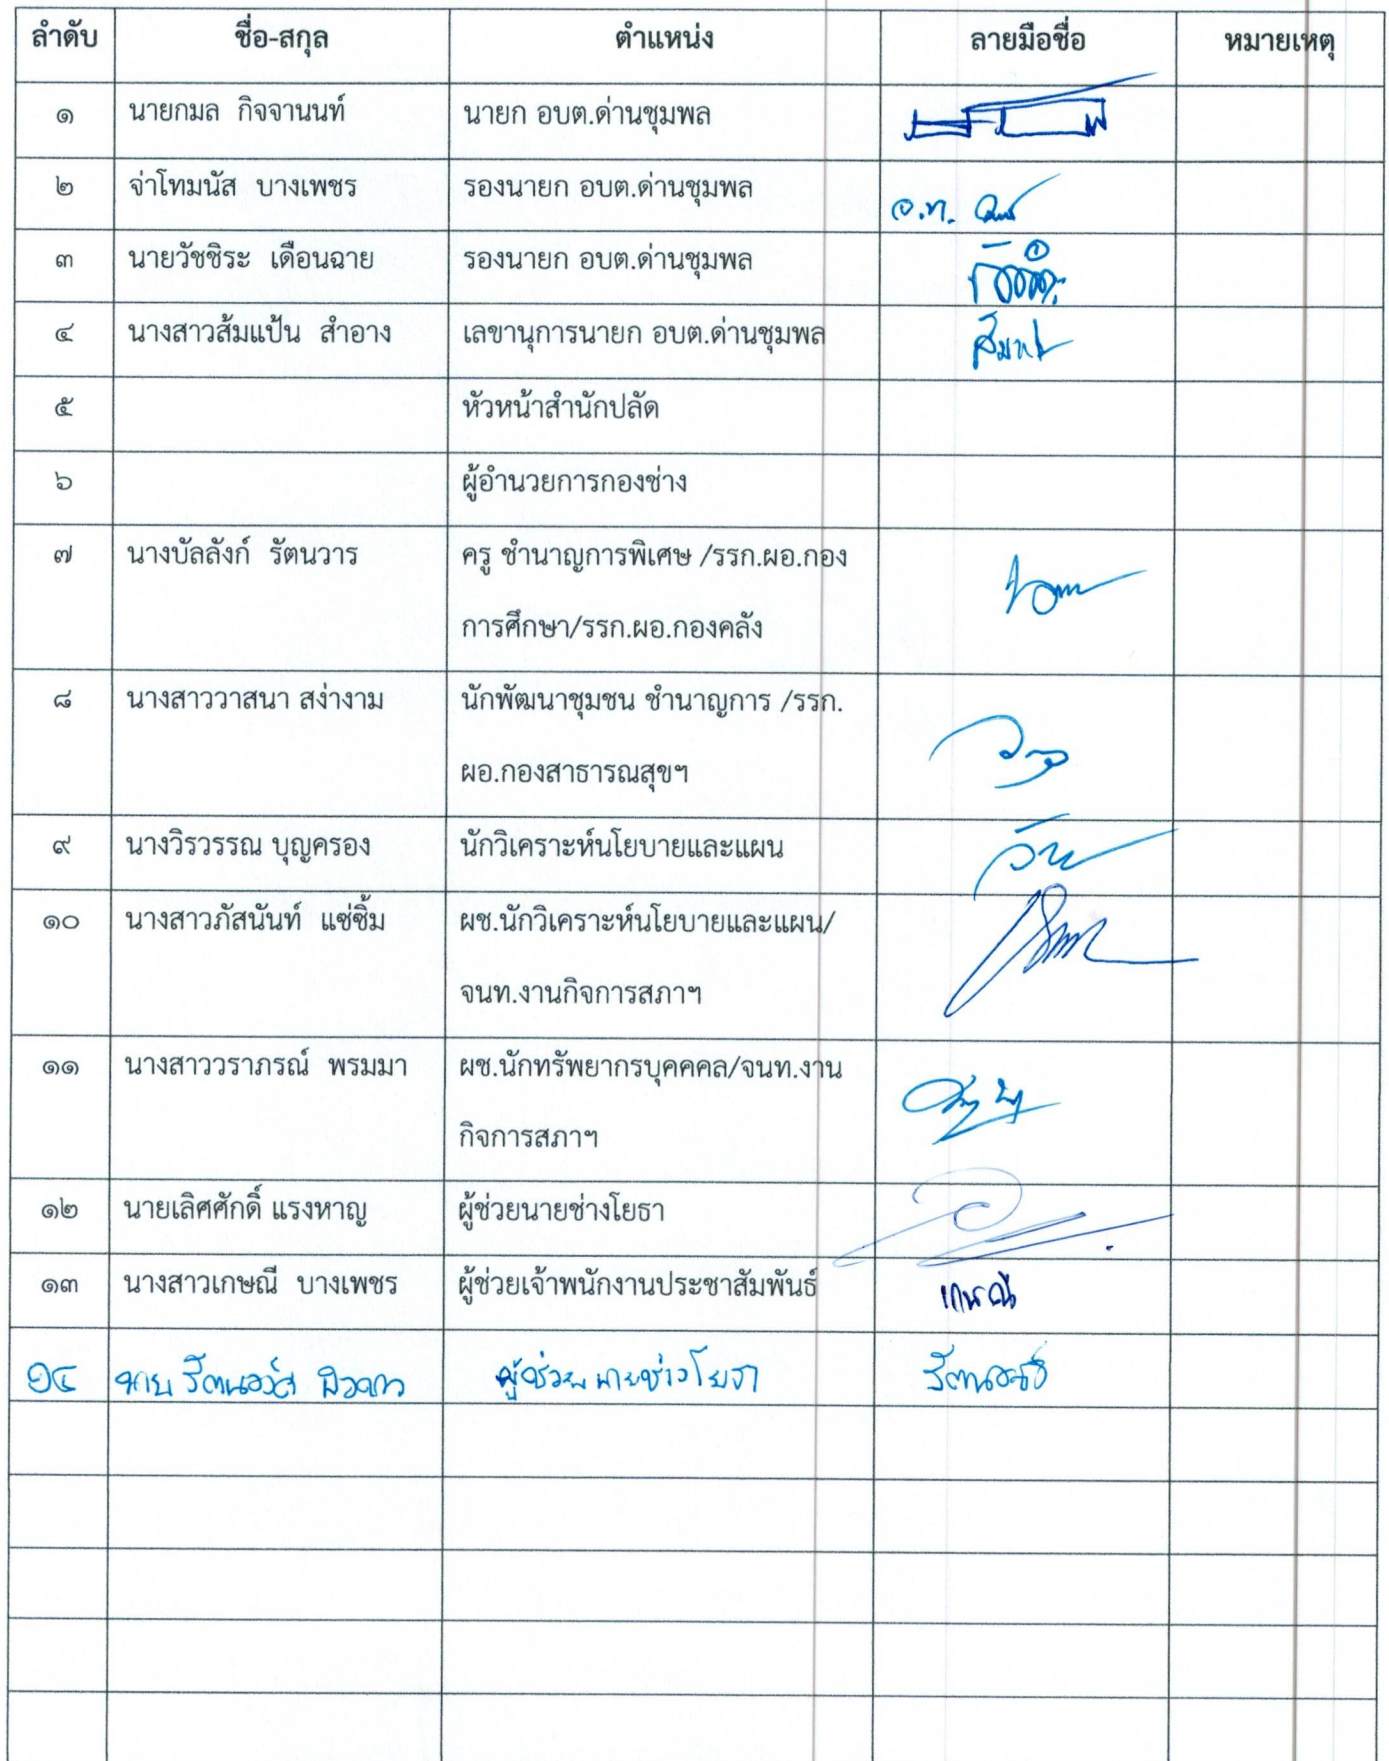 ลำดับ ชื่อ-สกุล ตำแหน่ง ลายมือชื่อ หมายเหตุ
๑ นายกมล กิจจานนท์ นายก อบต.ด่านชุมพล
๒ จ่าโทมนัส บางเพชร รองนายก อบต.ด่านชุมพล จ.ท.
๓ นายวัชชิระ เดือนฉาย รองนายก อบต.ด่านชุมพล
๔ นางสาวส้มแป้น สำอาง เลขานุการนายก อบต.ด่านชุมพล
๕ หัวหน้าสำนักปลัด
๖ ผู้อำนวยการกองช่าง
๗ นางบัลลังก์ รัตนวาร ครู ชำนาญการพิเศษ /รรก.ผอ.กอง
การศึกษา/รรก.ผอ.กองคลัง
๘ นางสาววาสนา สง่างาม นักพัฒนาชุมชน ชำนาญการ /รรก.
ผอ.กองสาธารณสุขฯ
๙ นางวิรวรรณ บุญครอง นักวิเคราะห์นโยบายและแผน
๑๐ นางสาวภัสนันท์ แซ่ซิ้ม ผช.นักวิเคราะห์นโยบายและแผน/
จนท.งานกิจการสภาฯ
๑๑ นางสาววราภรณ์ พรมมา ผช.นักทรัพยากรบุคคคล/จนท.งาน
กิจการสภาฯ
๑๒ นายเลิศศักดิ์ แรงหาญ ผู้ช่วยนายช่างโยธา
๑๓ นางสาวเกษณี บางเพชร ผู้ช่วยเจ้าพนักงานประชาสัมพันธ์ เกษณี
๑๔ นาย ผู้ช่วยนายช่างโยธา